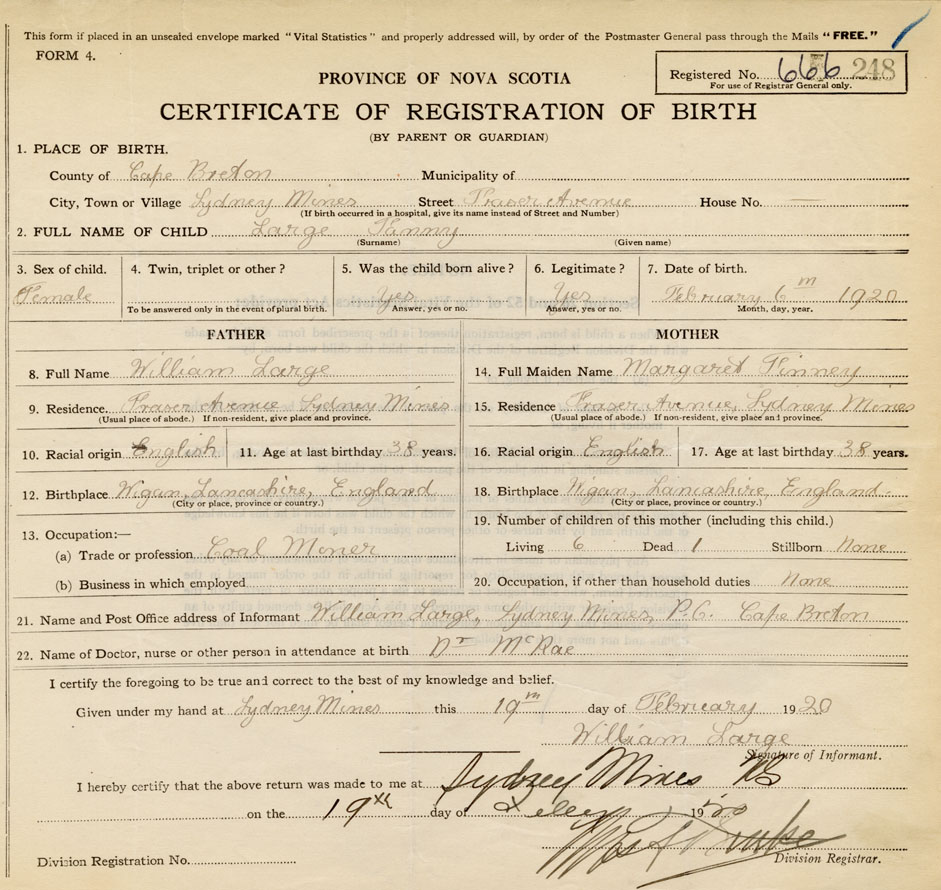 This form if placed in an unsealed envelope marked "Vital Statistics" and properly addressed will, by order of the Postmaster General pass through the Mails "FREE."
FORM 4.
Registered No. 666 248
For use of Registrar General only.
PROVINCE OF NOVA SCOTIA
CERTIFICATE OF REGISTRATION OF BIRTH
(BY PARENT OR GUARDIAN)
1. PLACE OF BIRTH.
County of Cape Breton Municipality of
City, Town or Village Sydney Mines Street Fraser Avenue House No. —
(If birth occurred in a hospital, give its name instead of Street and Number)
2. FULL NAME OF CHILD Large Fanny
(Surname) (Given name)
3. Sex of child. 4. Twin, triplet or other? 5. Was the child born alive? 6. Legitimate? 7. Date of birth.
Female Yes Yes February 6th 1920
To be answered only in the event of plural birth. Answer, yes or no. Answer, yes or no. Month, day, year.
FATHER MOTHER
8. Full Name William Large 14. Full Maiden Name Margaret Pinney
9. Residence. Fraser Avenue Sydney Mines 15. Residence Fraser Avenue, Sydney Mines
(Usual place of abode.) If non-resident, give place and province. (Usual place of abode.) If non-resident, give place and province.
10. Racial origin English 11. Age at last birthday 38 years. 16. Racial origin English 17. Age at last birthday 38 years.
12. Birthplace Wigan, Lancashire, England 18. Birthplace Wigan, Lancashire, England.
(City or place, province or country.) (City or place, province or country.)
13. Occupation:— 19. Number of children of this mother (including this child.)
(a) Trade or profession Coal Miner Living 6 Dead 1 Stillborn None
(b) Business in which employed 20. Occupation, if other than household duties None
21. Name and Post Office address of Informant William Large, Sydney Mines, P.O. Cape Breton
22. Name of Doctor, nurse or other person in attendance at birth Dr McRae
I certify the foregoing to be true and correct to the best of my knowledge and belief.
Given under my hand at Sydney Mines this 19th day of February 1920
William Large
Signature of Informant.
I hereby certify that the above return was made to me at Sydney Mines NS
on the 19th day of 1920
Division Registration No. Division Registrar.